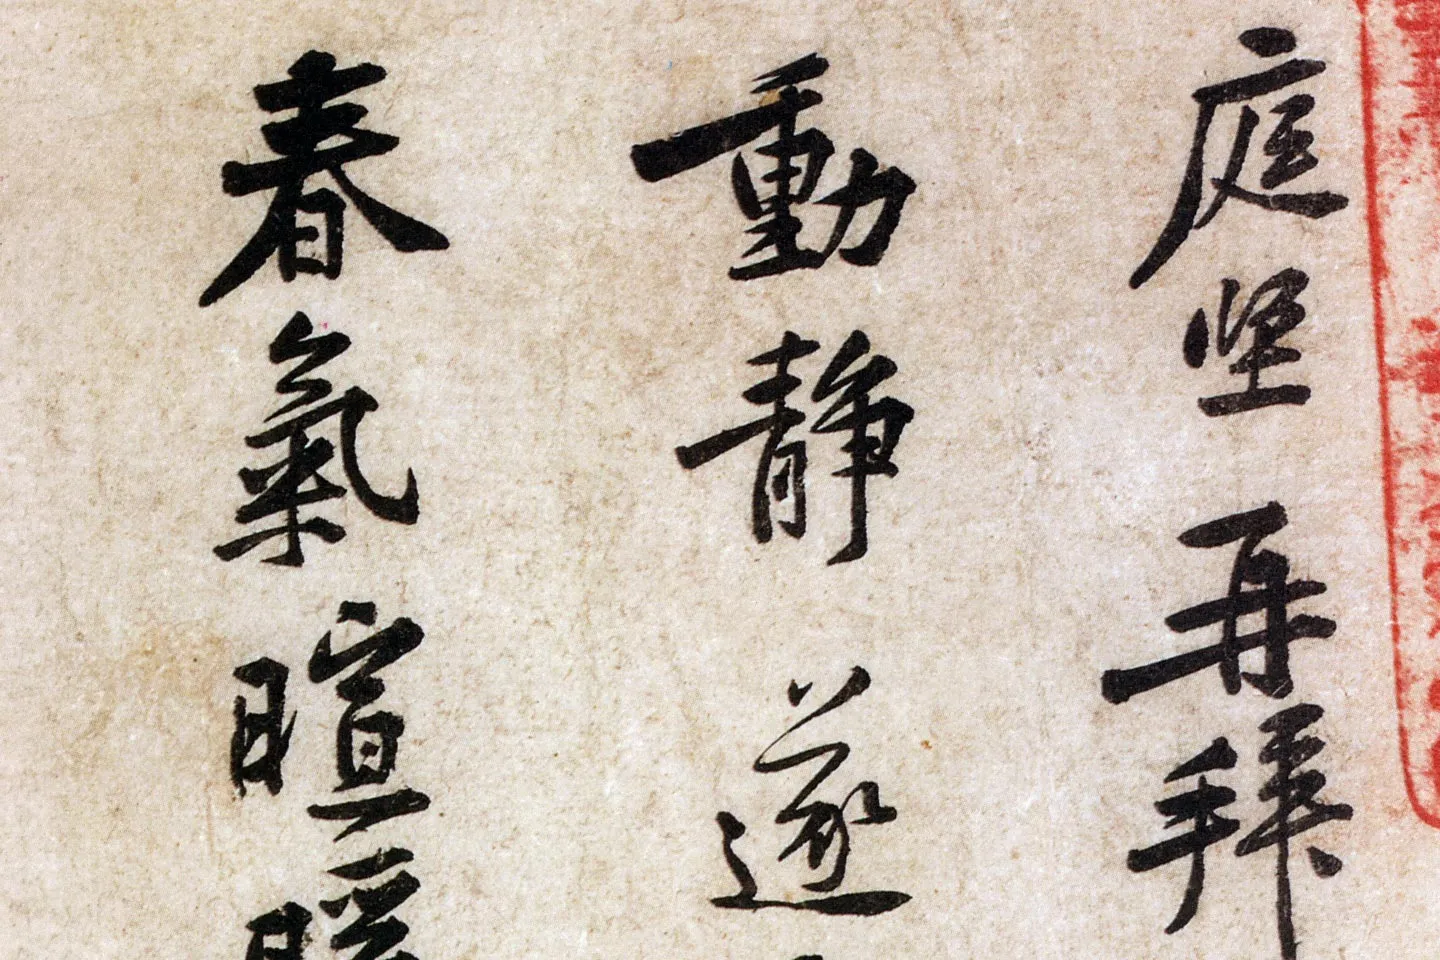 庭堅再拜
動靜遂
春氣暄暖